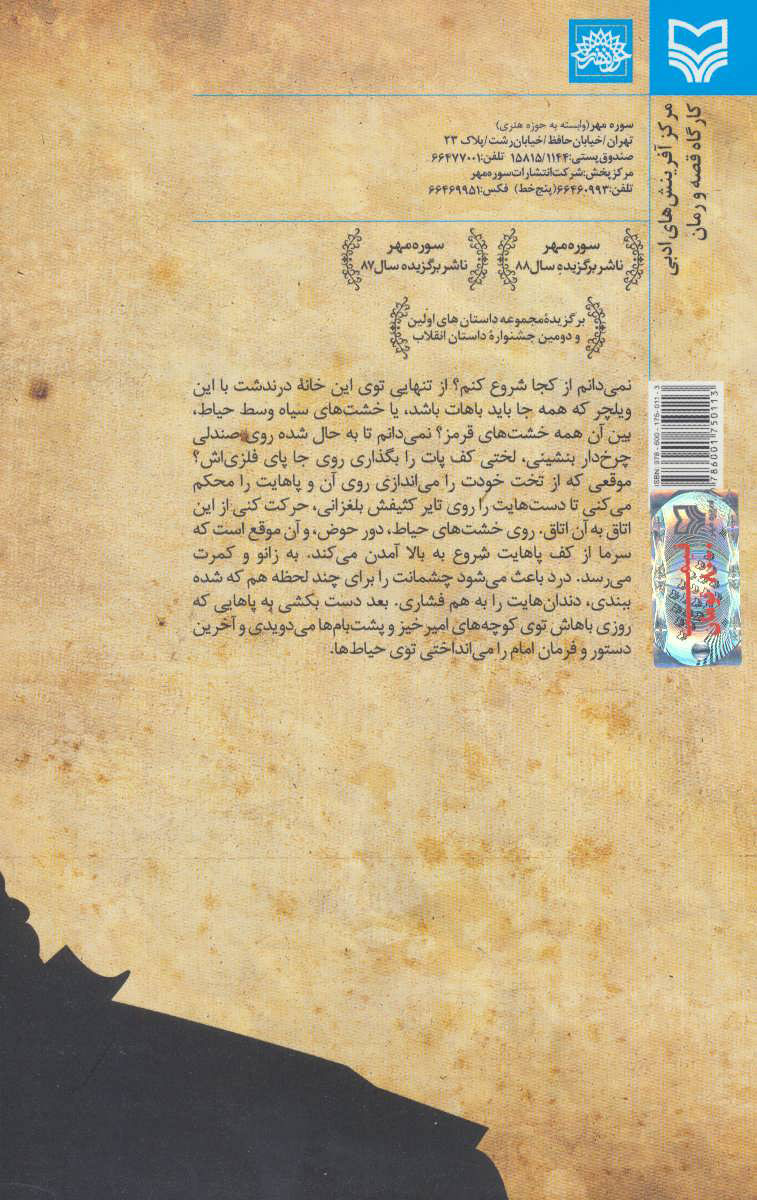 مرکز آفرینش‌های ادبی
کارگاه قصه و رمان
سوره مهر(وابسته به حوزه هنری)
تهران/خیابان‌حافظ/خیابان‌رشت/پلاک ۲۳
صندوق‌پستی:۱۵۸۱۵/۱۱۴۴ تلفن:۶۶۴۷۷۰۰۱
مرکز پخش:شرکت‌انتشارات‌سوره‌مهر
تلفن:۶۶۴۶۰۹۹۳(پنج‌خط) فکس:۶۶۴۶۹۹۵۱
سوره‌مهر
ناشر برگزیده سال۸۸
سوره‌مهر
ناشر برگزیده سال۸۷
برگزیدهٔ‌مجموعه داستان های اولین
و دومین جشنوارهٔ داستان انقلاب
نمی‌دانم از کجا شروع کنم؟ از تنهایی توی این خانهٔ درندشت با این
ویلچر که همه جا باید باهات باشد، یا خشت‌های سیاه وسط حیاط،
بین آن همه خشت‌های قرمز؟ نمی‌دانم تا به حال شده روی صندلی
چرخ‌دار بنشینی، لختی کف پات را بگذاری روی جا پای فلزی‌اش؟
موقعی که از تخت خودت را می‌اندازی روی آن و پاهایت را محکم
می‌کنی تا دست‌هایت را روی تایر کثیفش بلغزانی، حرکت کنی از این
اتاق به آن اتاق. روی خشت‌های حیاط، دور حوض، و آن موقع است که
سرما از کف پاهایت شروع به بالا آمدن می‌کند. به زانو و کمرت
می‌رسد. درد باعث می‌شود چشمانت را برای چند لحظه هم که شده
ببندی، دندان‌هایت را به هم فشاری. بعد دست بکشی به پاهایی که
روزی باهاش توی کوچه‌های امیرخیز و پشت‌بام‌ها می‌دویدی و آخرین
دستور و فرمان امام را می‌انداختی توی حیاط‌ها.
ISBN: 978-600-175-011-3
9786001750113